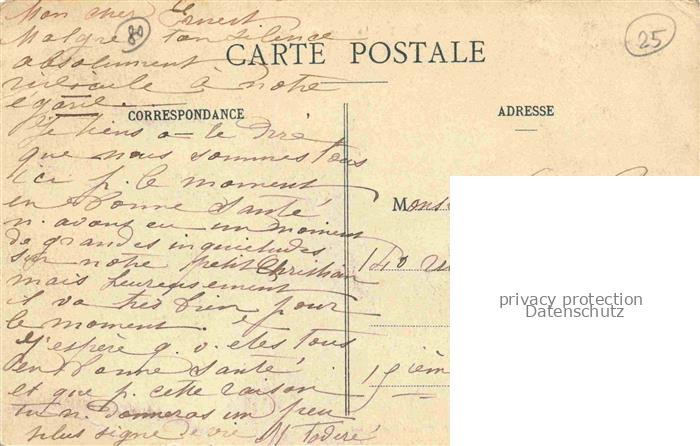 Mon cher Ernest
Malgré ton silence
absolument
ridicule à notre
égard
80
25
CARTE POSTALE
CORRESPONDANCE
ADRESSE
Je tiens à te dire
que nous sommes tous
ici p. le moment
en bonne santé
n. avons eu un moment
de grandes inquiétudes
sur notre petit Christian
mais heureusement
il va très bien pour
le moment.
J'espère q. v. êtes tous
en bonne santé
et que p. cette raison
tu n. donneras un peu
plus signe de vie
Mons
140
15 ième
privacy protection
Datenschutz